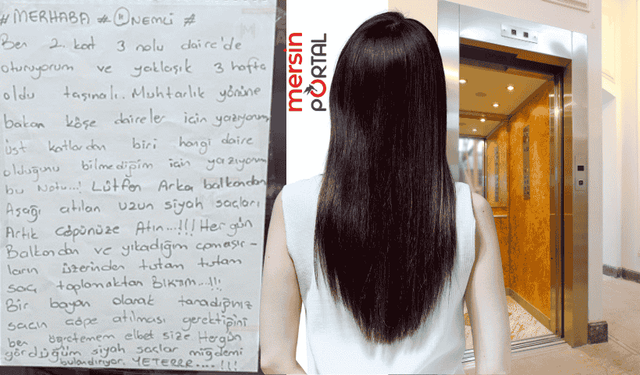 #MERHABA # ÖNEMLİ #
Ben 2. kat 3 nolu daire'de
oturuyorum ve yaklaşık 3 hafta
oldu taşınalı.. Muhtarlık yönüne
bakan köşe daireler için yazıyorum
üst katlardan biri hangi daire
olduğunu bilmediğim için yazıyorum
bu Notu...! Lütfen Arka balkondan
Aşağı atılan uzun siyah saçları
Artık çöpünüze Atın...!!! Her gün
Balkondan ve yıkadığım çamaşır-
ların üzerinden tutam tutam
saç toplamaktan Bıktım...!!
Bir bayan olarak taradığınız
saçın çöpe atılması gerektiğini
ben öğretemem elbet size Hergün
gördüğüm siyah saçlar midemi
bulandırıyor YETERRR....!!!
mersin
PORTAL